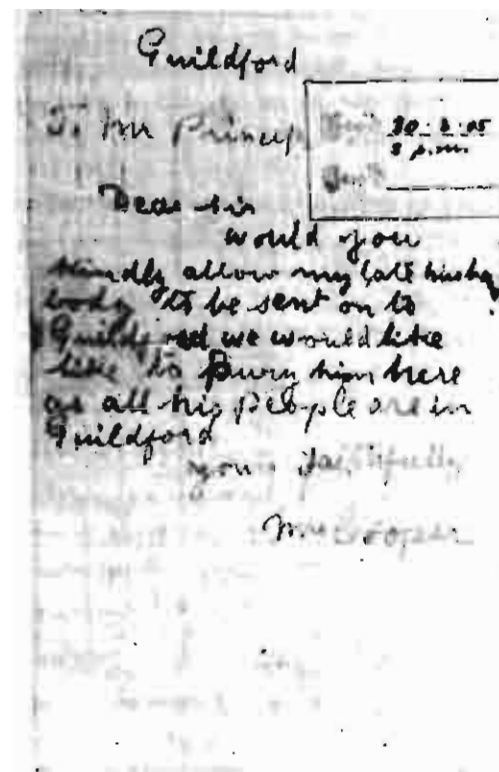 Guildford
To Mr Princep
30 - 8 - 05
8 p.m.
Dear Sir
would you
kindly allow my late husbn
body to be sent on to
Guildford we would like
like to bury him here
as all his people are in
Guildford
yours faithfully
Mrs Cooper